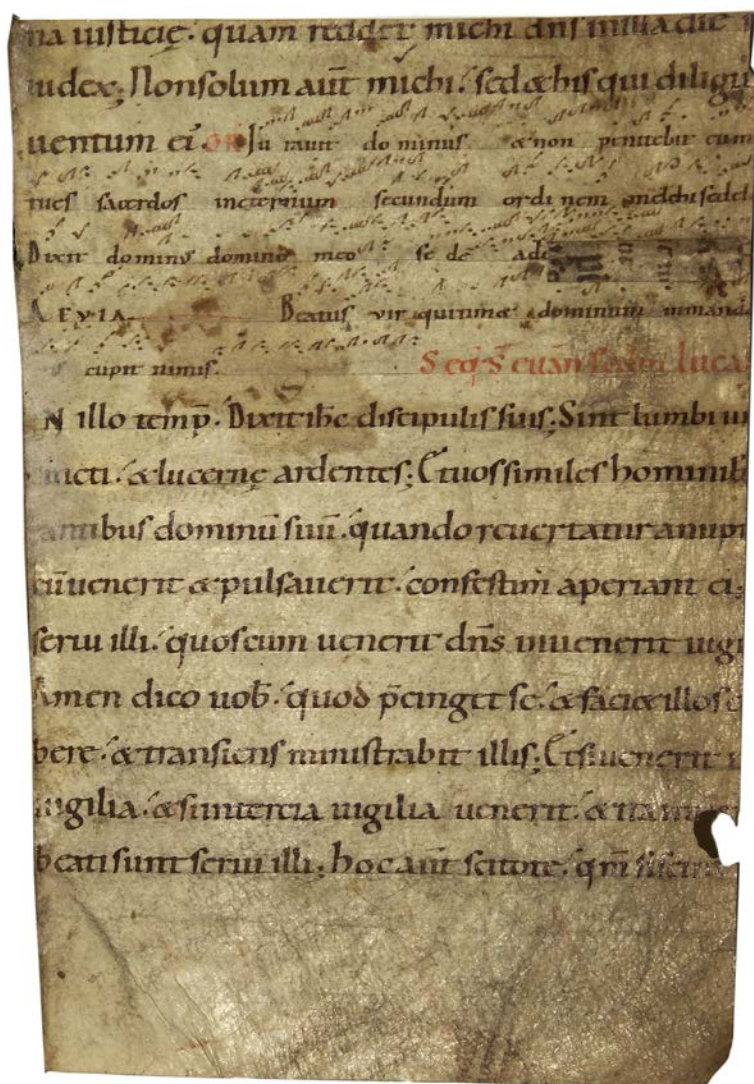 na iusticię. quam reddet michi dn̄s in illa die
iudex; Non solum aūt michi. sed & his qui diligu
uentum ei᾽. Iu rauit do minus & non penitebit eum
tu es sacerdos in eternum secundum ordi nem melchisedeh
Dixit dominus domino meo se de ade
A E V I A Beatus vir qui timet dominum in mand
cupit nimis. Seq̄. S̄ euan̄ sedm̄ luca
N illo temp̄. Dixit ih̄c discipulis suis; Sint lumbi u
incti. & lucernę ardentes; Et uos similes hominib;
antibus dominū suū. quando reuertatur a nupt
cū uenerit & pulsauerit. confestim aperiant ei;
serui illi. quos cum uenerit dn̄s inuenerit uigi
Amen dico uob̄. quod p̄cinget se. & faci& illos
bere. & transiens ministrabit illis; Et si uenerit
uigilia. & si in tercia uigilia uenerit. & ita
beati sunt serui illi; hoc aūt scitote. qm̄ si